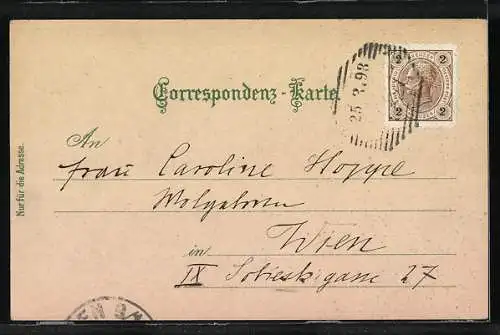 Correspondenz-Karte
25 3.98
2 2
2 2
Nur für die Adresse.
An
Frau Caroline Hoppe
Wolgeboren
in Wien
IX Sobieskigasse 27